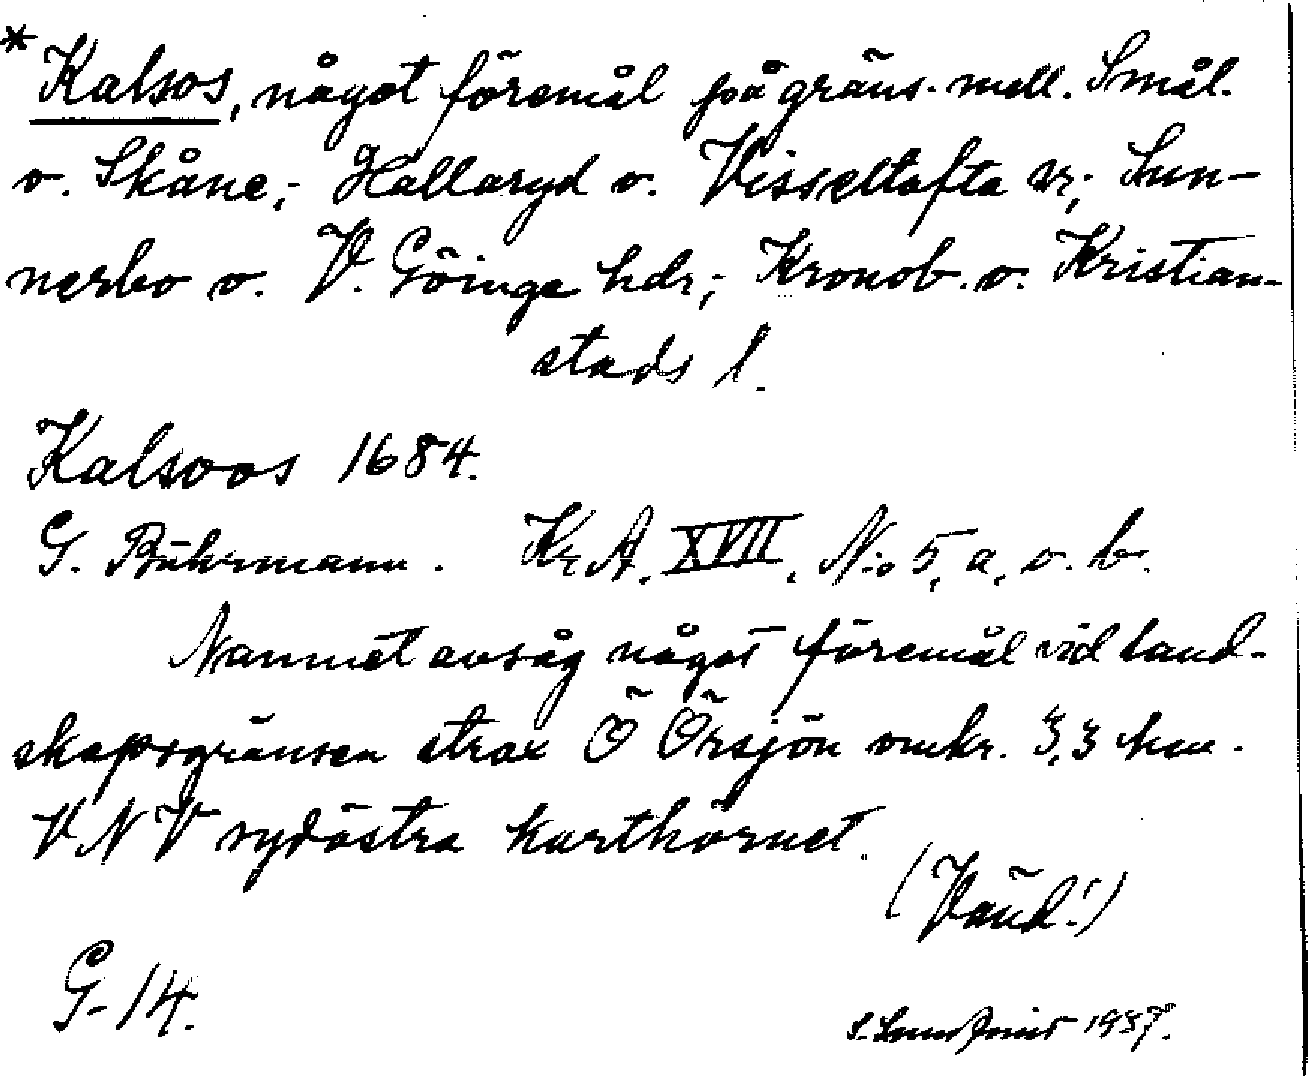 * Kalsos, något föremål på gräns. mell. Smål.
o. Skåne,; Hallaryd o. Visseltofta sr; Sun-
nerbo o. V. Göinge hdr; Kronob. o. Kristian-
stads l.
Kalsoos 1684.
G. Buhrmann. Kr A. XVII, N:o 5, a, o. b.
Namnet avsåg något föremål vid land-
skapsgränsen strax Ö Örsjön omkr. 3,3 km.
VNV sydöstra karthörnet.
(Vänd!)
G-14.
1937.